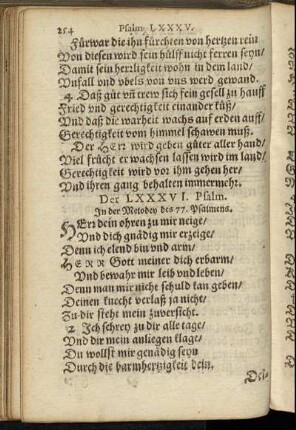 254 Psalm LXXXV.
Fürwar die ihn fürchten von hertzen rein
Von diesen wird sein hülff nicht ferren seyn/
Damit sein herzligkeit wohn in dem land/
Unfall vnd vbels von vns werd gewand.
4 Daß güt vñ trew sich fein gesell zu hauff
Fried vnd gerechtigkeit einander küß/
Vnd daß die warheit wachs auf erden auff/
Gerechtigkeit vom himmel schawen muß.
Der HErz wird geben güter aller hand/
Viel frücht erwachsen lassen wird im land/
Gerechtigkeit wird vor jhm gehen her/
Vnd ihren gang behalten immermehr.
Der LXXXVI. Psalm.
In der Melodey des 77. Psalmens.
HErz dein ohren zu mir neige/
Vnd dich gnädig mir erzeige/
Denn ich elend bin vnd arm/
HERR Gott meiner dich erbarm/
Vnd bewahr mir leib vnd leben/
Denn man mir nicht schuld kan geben/
Deinen knecht verlaß ja nicht/
Zu dir steht mein zuversicht.
2 Ich schrey zu dir alle tage/
Vnd dir mein anliegen klage/
Du wollst mir genädig seyn
Durch die barmhertzigkeit dein.